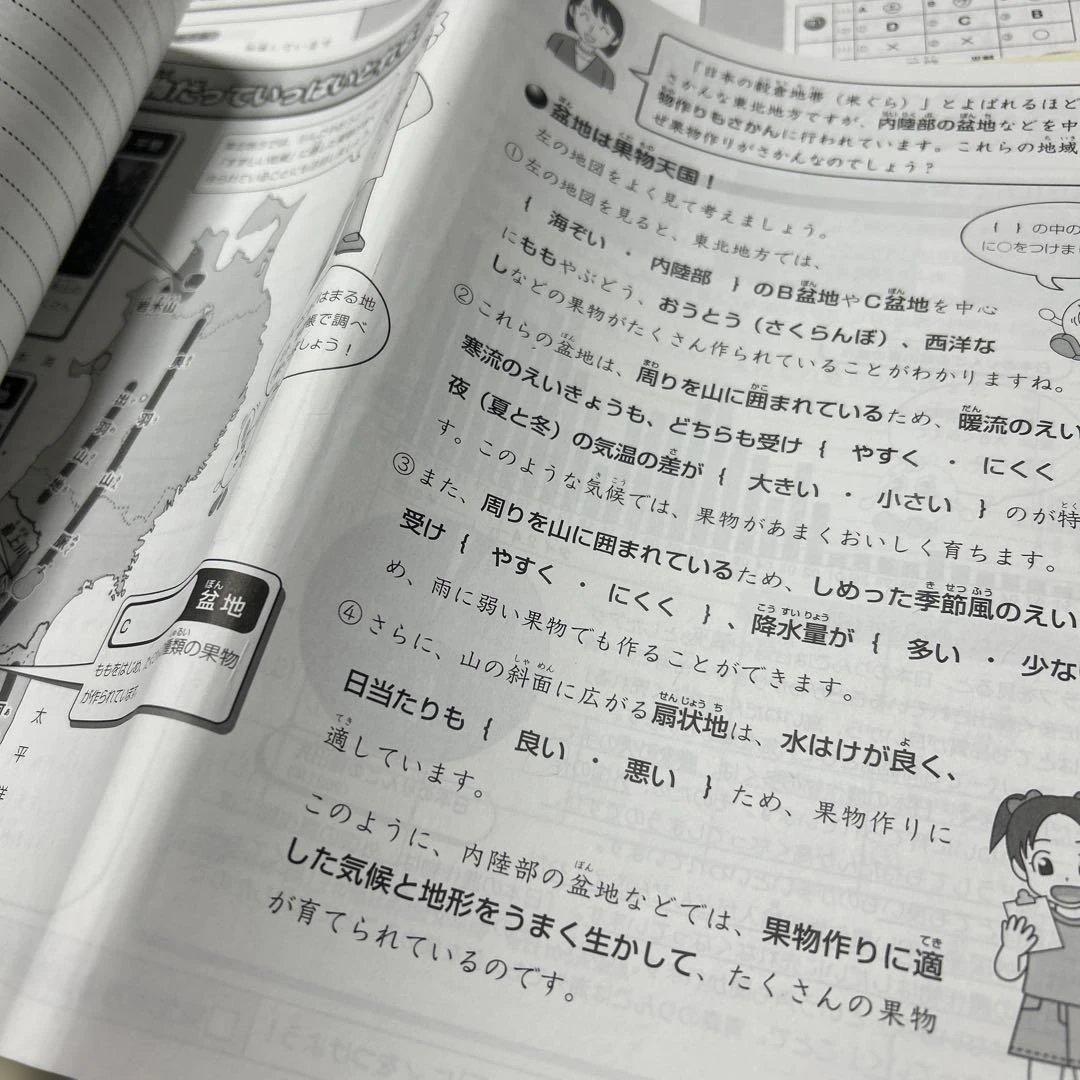 「日本の穀倉地帯（米ぐら）」とよばれるほど
さかんな東北地方ですが、内陸部の盆地などを中
物作りもさかんに行われています。これらの地域
ぜ果物作りがさかんなのでしょう？
盆地は果物天国！
① 左の地図をよく見て考えましょう。
左の地図を見ると、東北地方では、
｛ 海ぞい ・ 内陸部 ｝のＢ盆地やＣ盆地を中心
にももやぶどう、おうとう（さくらんぼ）、西洋な
しなどの果物がたくさん作られていることがわかりますね。
② これらの盆地は、周りを山に囲まれているため、暖流のえい
寒流のえいきょうも、どちらも受け｛ やすく ・ にくく
夜（夏と冬）の気温の差が｛ 大きい ・ 小さい ｝のが特
す。このような気候では、果物があまくおいしく育ちます。
③ また、周りを山に囲まれているため、しめった季節風のえい
受け｛ やすく ・ にくく ｝、降水量が｛ 多い ・ 少な
め、雨に弱い果物でも作ることができます。
④ さらに、山の斜面に広がる扇状地は、水はけが良く、
日当たりも｛ 良い ・ 悪い ｝ため、果物作りに
適しています。
このように、内陸部の盆地などでは、果物作りに適
した気候と地形をうまく生かして、たくさんの果物
が育てられているのです。
｛ ｝の中の
に○をつけま
はまる地
帳で調べ
しょう！
岩木山
奥
羽
山
出
羽
山
C
盆地
ももをはじめ、
種類の果物
が作られています
太
平
洋
D
C
B
×
×
○